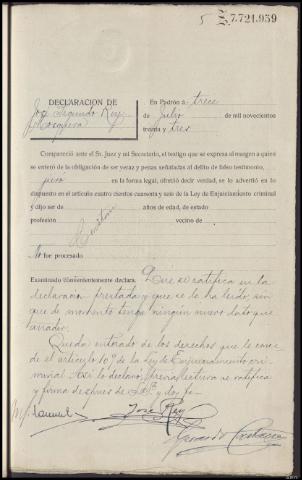 5 7.721.959
DECLARACION DE
José Segundo Rey
Mosquera
En Padrón á trece
de Julio de mil novecientos
treinta y tres
Compareció ante el Sr. Juez y mi Secretario, el testigo que se expresa al margen a quien
se enteró de la obligación de ser veraz y penas señaladas al delito de falso testimonio,
juró en la forma legal, ofreció decir verdad, se lo advertió en lo
dispuesto en el artículo cuatro cientos cuarenta y seis de la Ley de Enjuiciamiento criminal
y dijo ser de años de edad, de estado
profesión vecino de
No fué procesado
Examinado convenientemente declara. Que se ratifica en la
declaración prestada y que se le ha leido, sin
que de momento tenga ningún nuevo dato que
añadir.
Queda enterado de los derechos que le conce-
de el artículo 109 de la Ley de Enjuiciamiento cri-
minal. Así lo declaró, previa lectura se ratifica
y firma despues de S.Sª. y doy fe.
Manuel José Rey
Gerardo